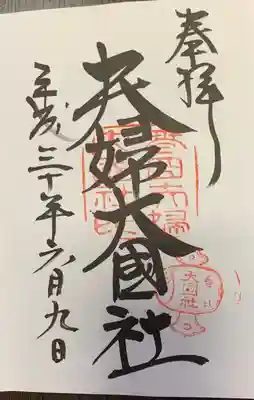 奉拝
夫婦大國社
平成三十年六月九日
大国社